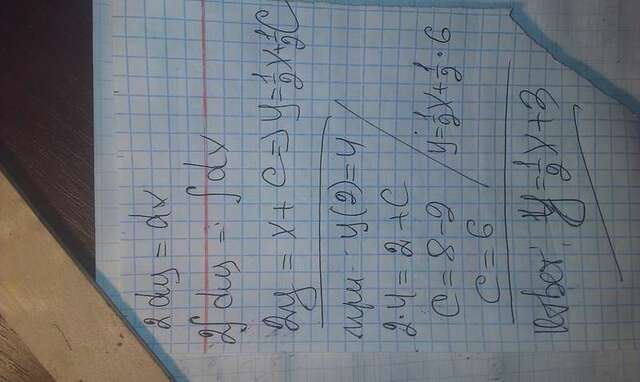 2dy = dx
2∫dy = ∫dx
2y = x + C => y = 1/2 x + 1/2 C
при y(2)=4
2·4 = 2 + C
C = 8-2
C = 6
y = 1/2 x + 1/2 · 6
y = 1/2 x + 3